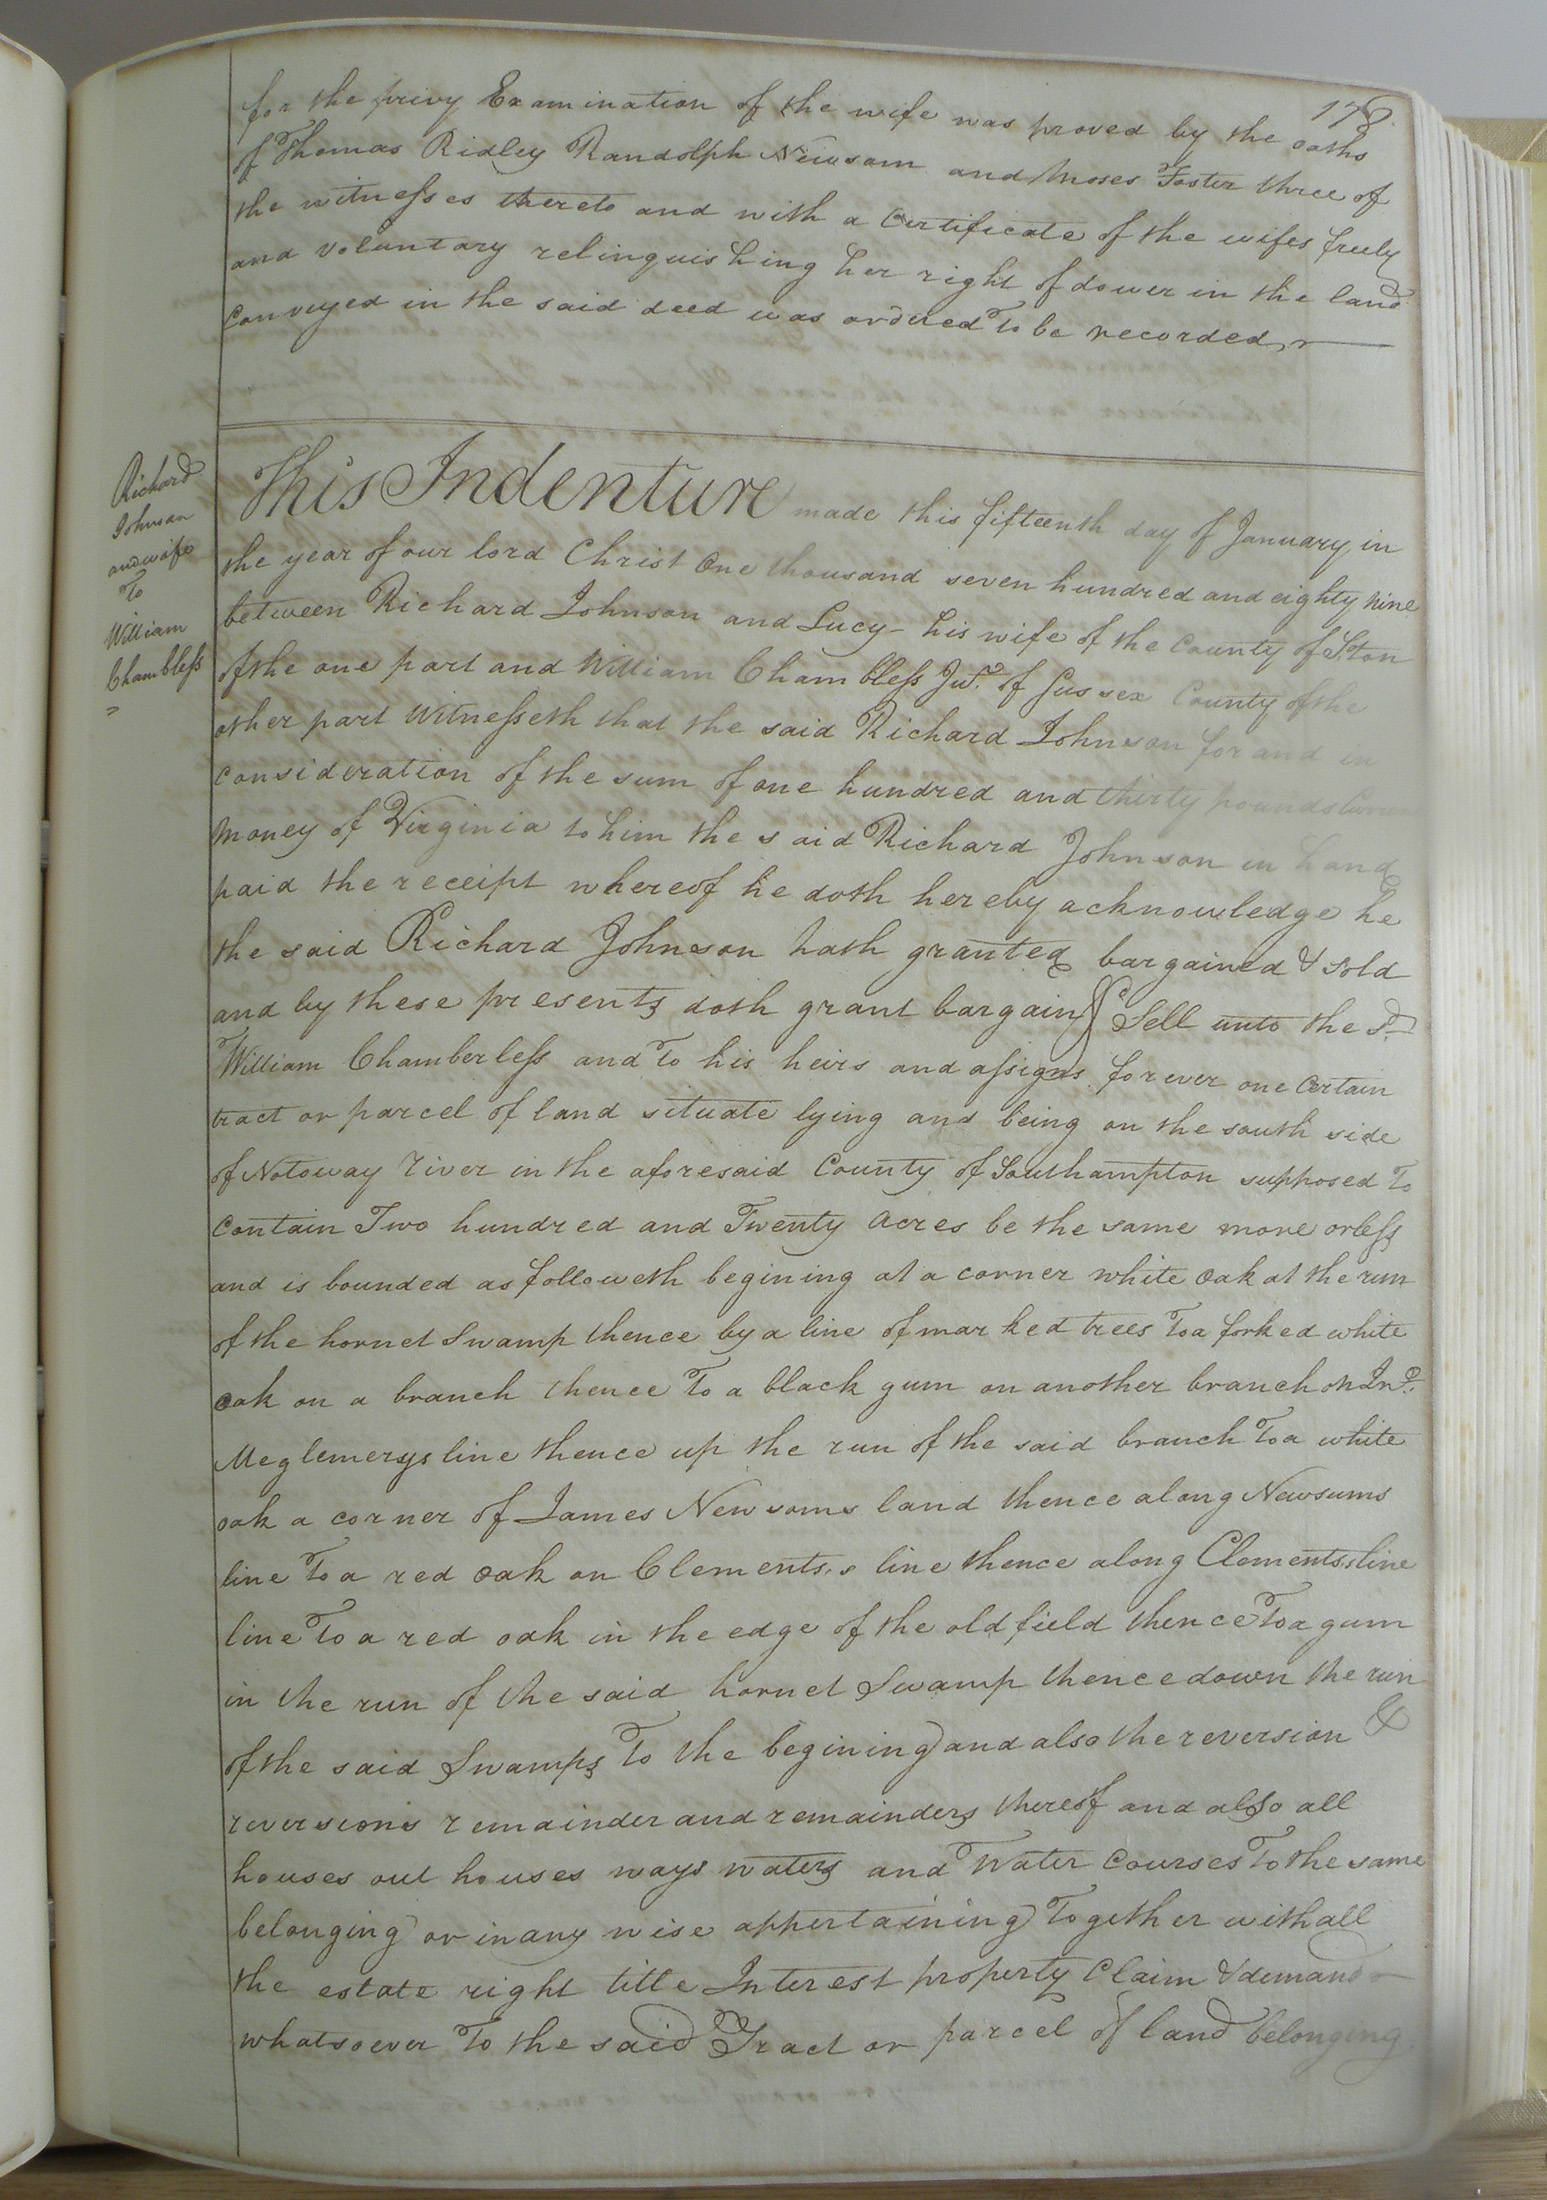 178.
for the privy Examination of the wife was proved by the oaths
of Thomas Ridley Randolph Newsom and Moses Foster three of
the witnesses thereto and with a Certificate of the wifes freely
and voluntary relinquishing her right of dower in the land
Conveyed in the said deed was ordered to be recorded
Richard
Johnson
and wife
To
William
Chambless
=
This Indenture made this fifteenth day of January in
the year of our lord Christ One thousand seven hundred and eighty nine
between Richard Johnson and Lucy his wife of the County of S.ton
of the one part and William Chambless Jur. of Sussex County of the
other part Witnesseth that the said Richard Johnson for and in
consideration of the sum of one hundred and thirty pounds
Money of Virginia to him the said Richard Johnson in hand
paid the receipt whereof he doth hereby acknowledge he
the said Richard Johnson hath granted bargained & sold
and by these presents doth grant bargain & Sell unto the Sd.
William Chamberless and to his heirs and assigns forever one Certain
tract or parcel of land situate lying and being on the south side
of Notoway river in the aforesaid County of Southampton supposed to
Contain Two hundred and Twenty acres be the same more or less
and is bounded as followeth begining at a corner white oak at the run
of the hornet Swamp thence by a line of marked trees to a forked white
oak on a branch thence to a black gum on another branch on Jno.
Meglemerys line thence up the run of the said branch to a white
oak a corner of James Newsoms land thence along Newsums
line to a red oak on Clements,s line thence along Clements,s line
line to a red oak in the edge of the old field thence to a gum
in the run of the said hornet Swamp thence down the run
of the said Swamps to the begining and also the reversion &
reversions remainder and remainders thereof and also all
houses out houses ways waters and water Courses to the same
belonging or in any wise appertaining together with all
the estate right title Interest property Claim & demand
whatsoever to the said Tract or parcel of land belonging